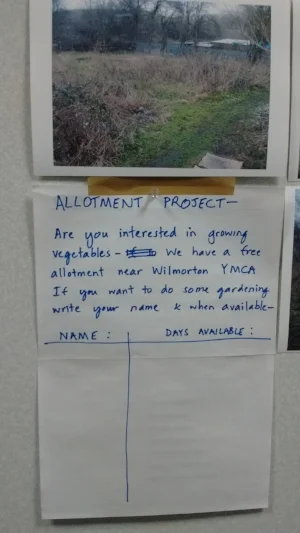 ALLOTMENT PROJECT-
Are you interested in growing
vegetables - We have a free
allotment near Wilmorton YMCA
If you want to do some gardening
write your name & when available-
NAME : DAYS AVAILABLE :